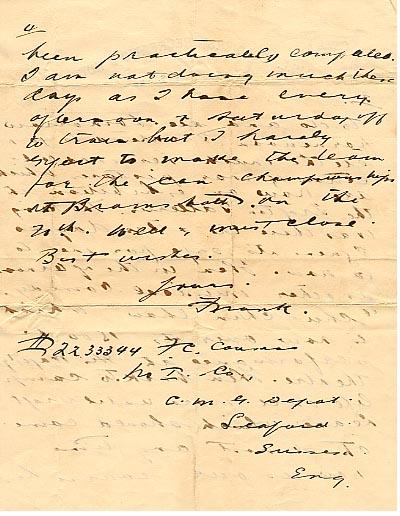 been practically completed.
I am not doing much these
days as I have every
afternoon & Saturday off
to train but I hardly
expect to make the team
for the Can. Championships
at Bramshott on the
Well, must close.
Best wishes.
Yours.
Frank.
2233344 F.C.
No I. Co.
C.M.G. Depot.
Seaford
Sussex
Eng.